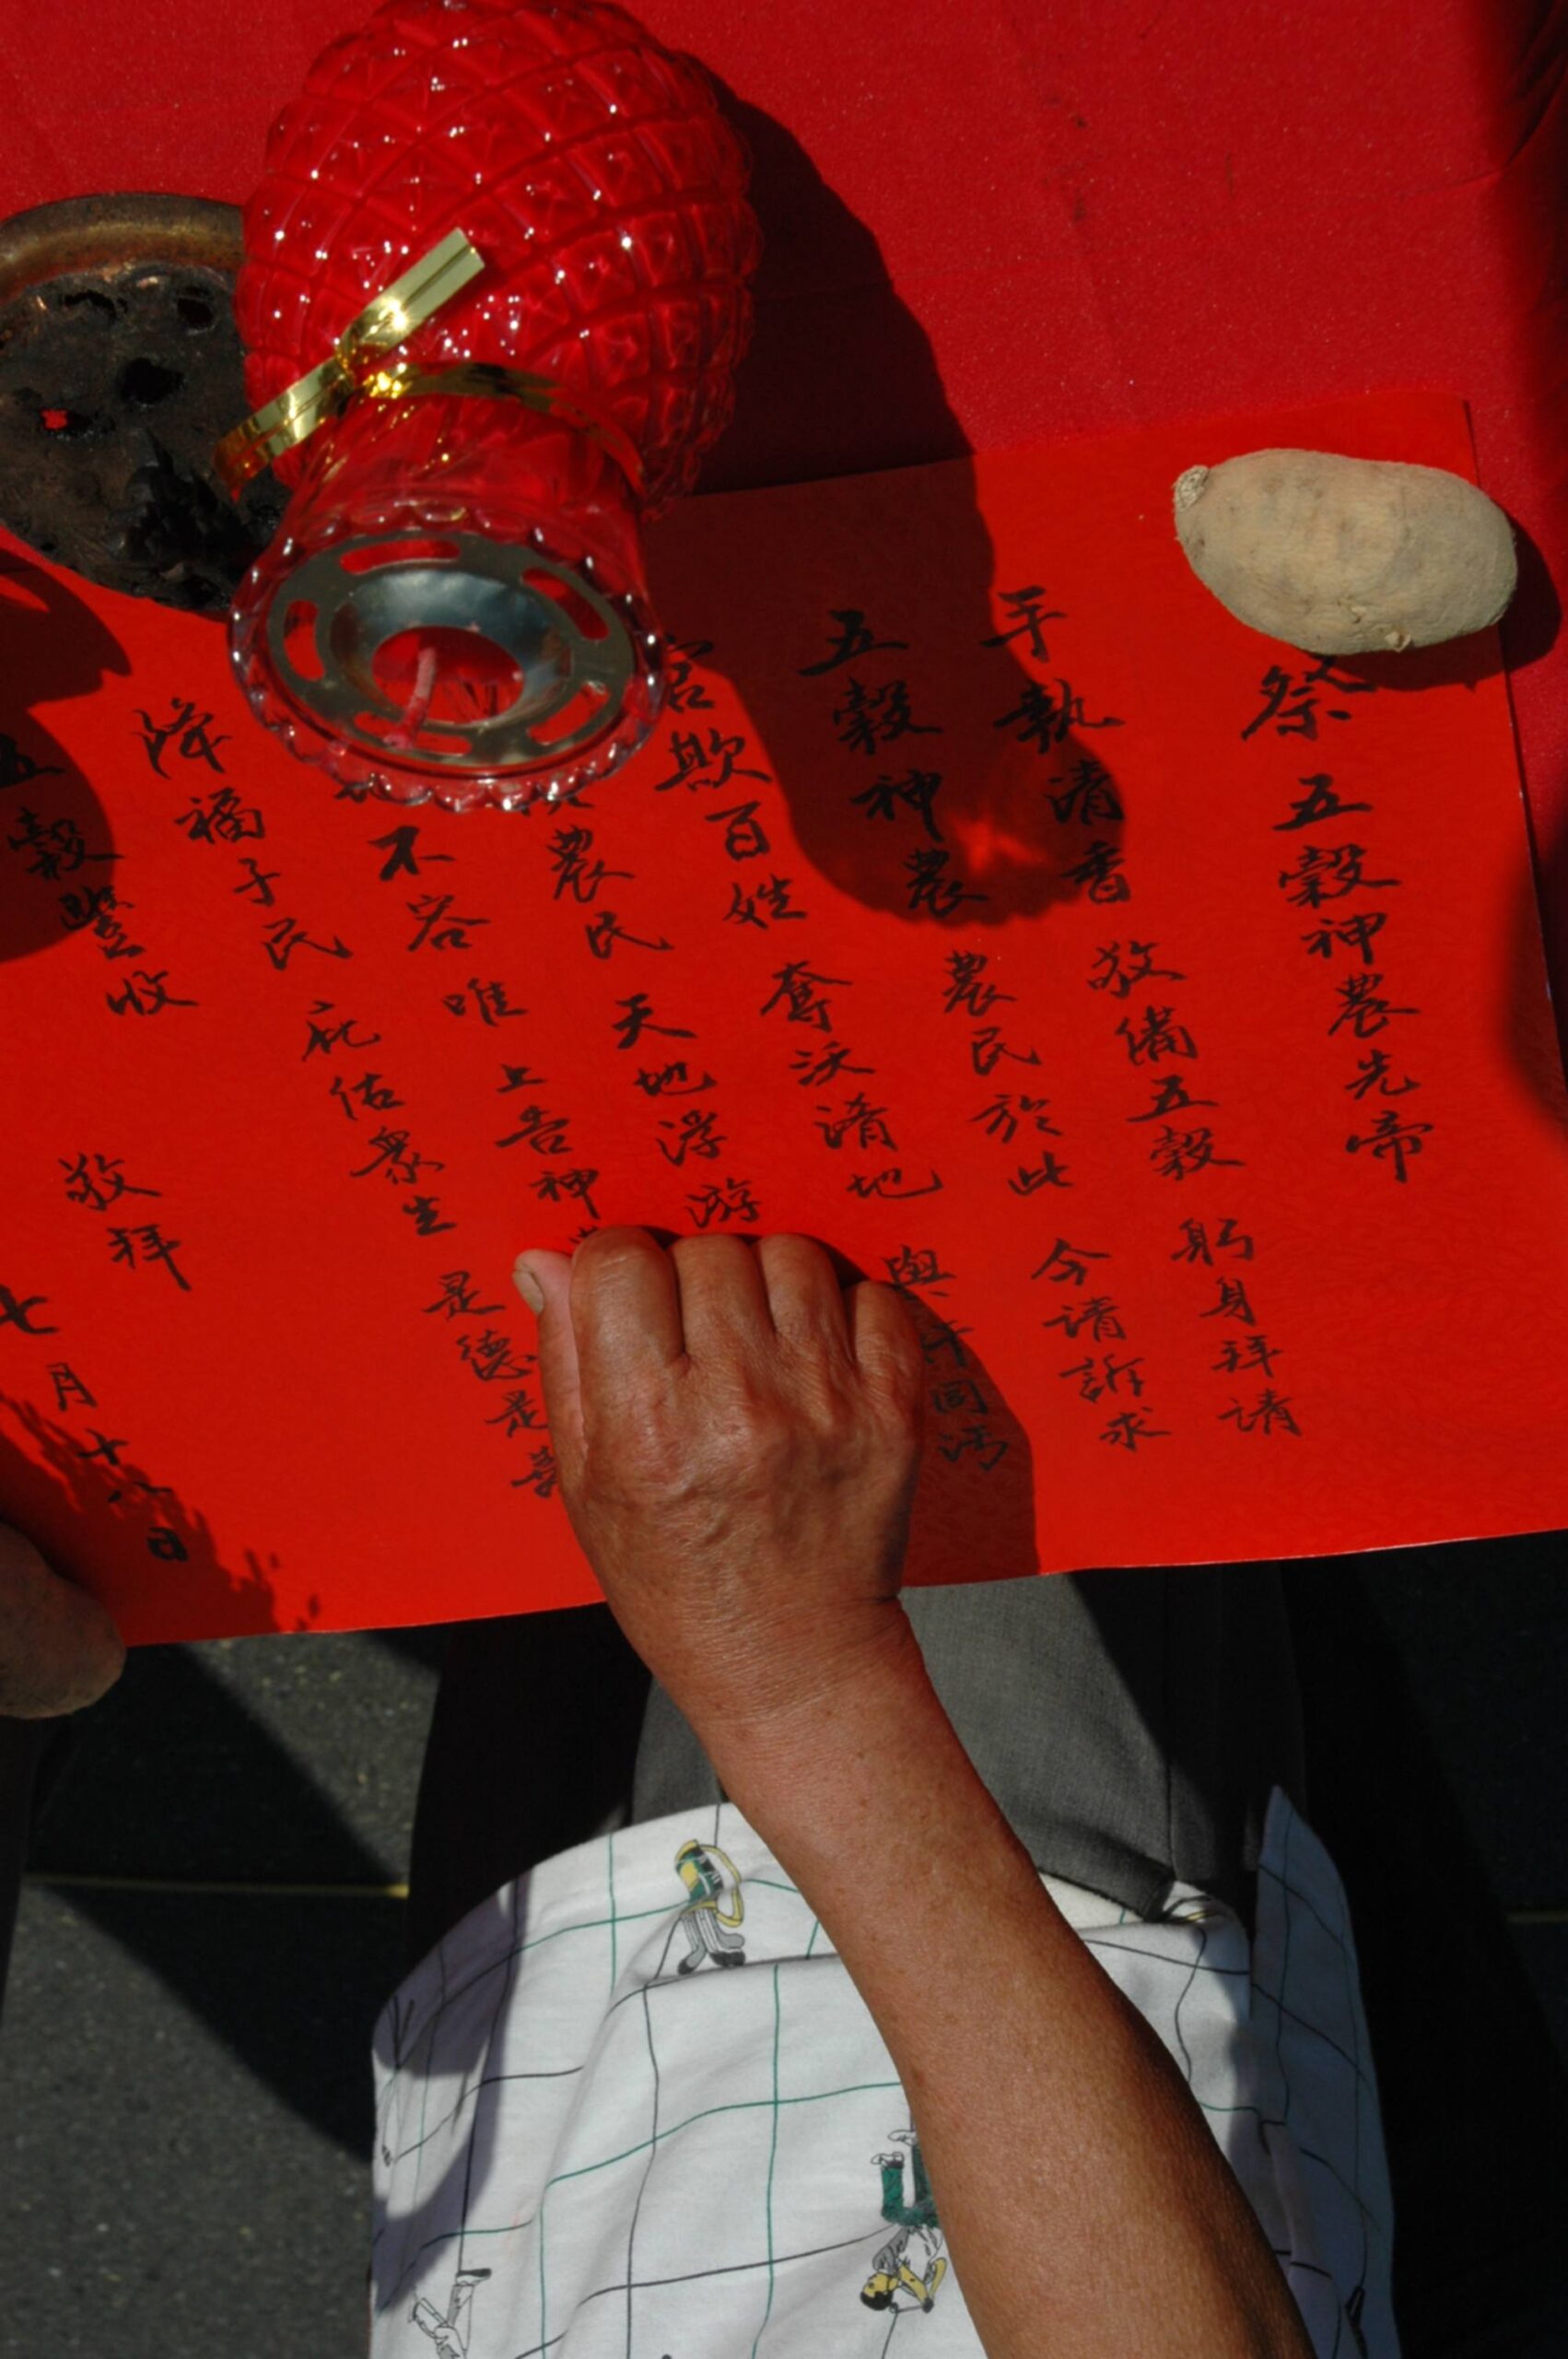 祭 五穀神農先帝
手執清香 敬備五穀 躬身拜請
五穀神農 農民於此 今請訴求
官欺百姓 奪沃濟地 與
農民 天地浮游
不容 唯上告神
降福子民 庇佑眾生 是德是
五穀豐收
敬拜
七月十八日